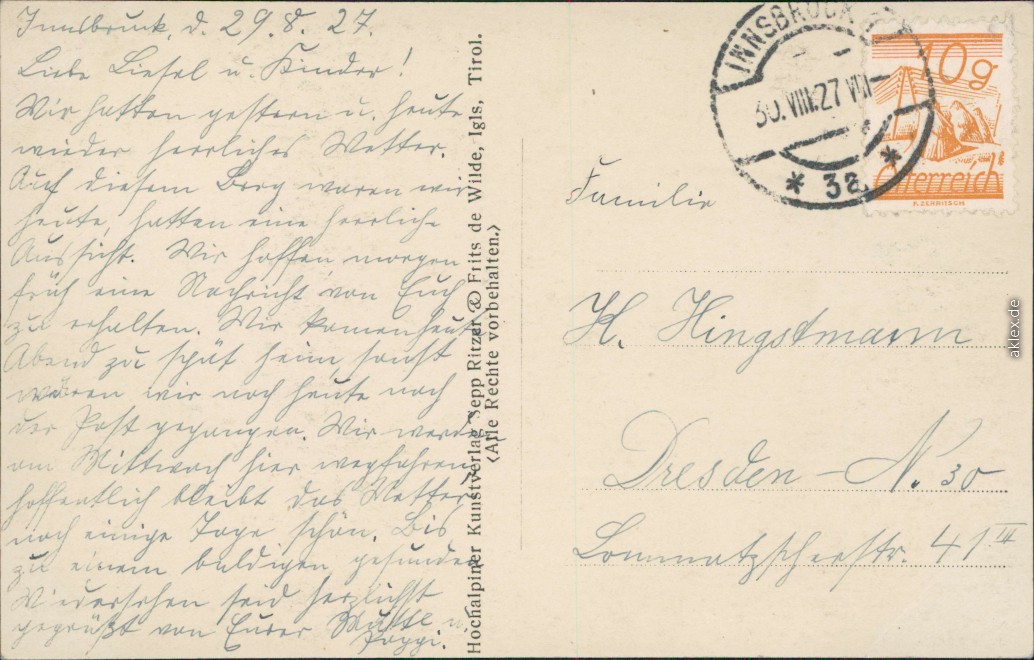 Innsbruck, d. 29.8.27.
Liebe Liesel u. Kinder!
Wir hatten gestern u. heute
wieder herrliches Wetter.
Auf diesem Berg waren wir
heute, hatten eine herrliche
Aussicht. Wir hoffen morgen
früh eine Nachricht von Euch
zu erhalten. Wir kamen heut
Abend zu spät heim sonst
wären wir noch heute nach
der Post gegangen. Wir werden
am Mittwoch hier wegfahren
hoffentlich bleibt das Wetter
noch einige Tage schön. Bis
zu einem baldigen gesunden
Wiedersehen seid herzlichst
gegrüßt von Eurer Mutti u.
Pappi.
Hochalpiner Kunstverlag Sepp Ritzer & Frits de Wilde, Igls, Tirol.
<Alle Rechte vorbehalten.>
INNSBRUCK
30.VIII.27 VIII
* 3a *
10g
Österreich
F. ZERRITSCH
Familie
H. Hingstmann
Dresden-N. 30
Lommatzscherstr. 41 II
aklex.de